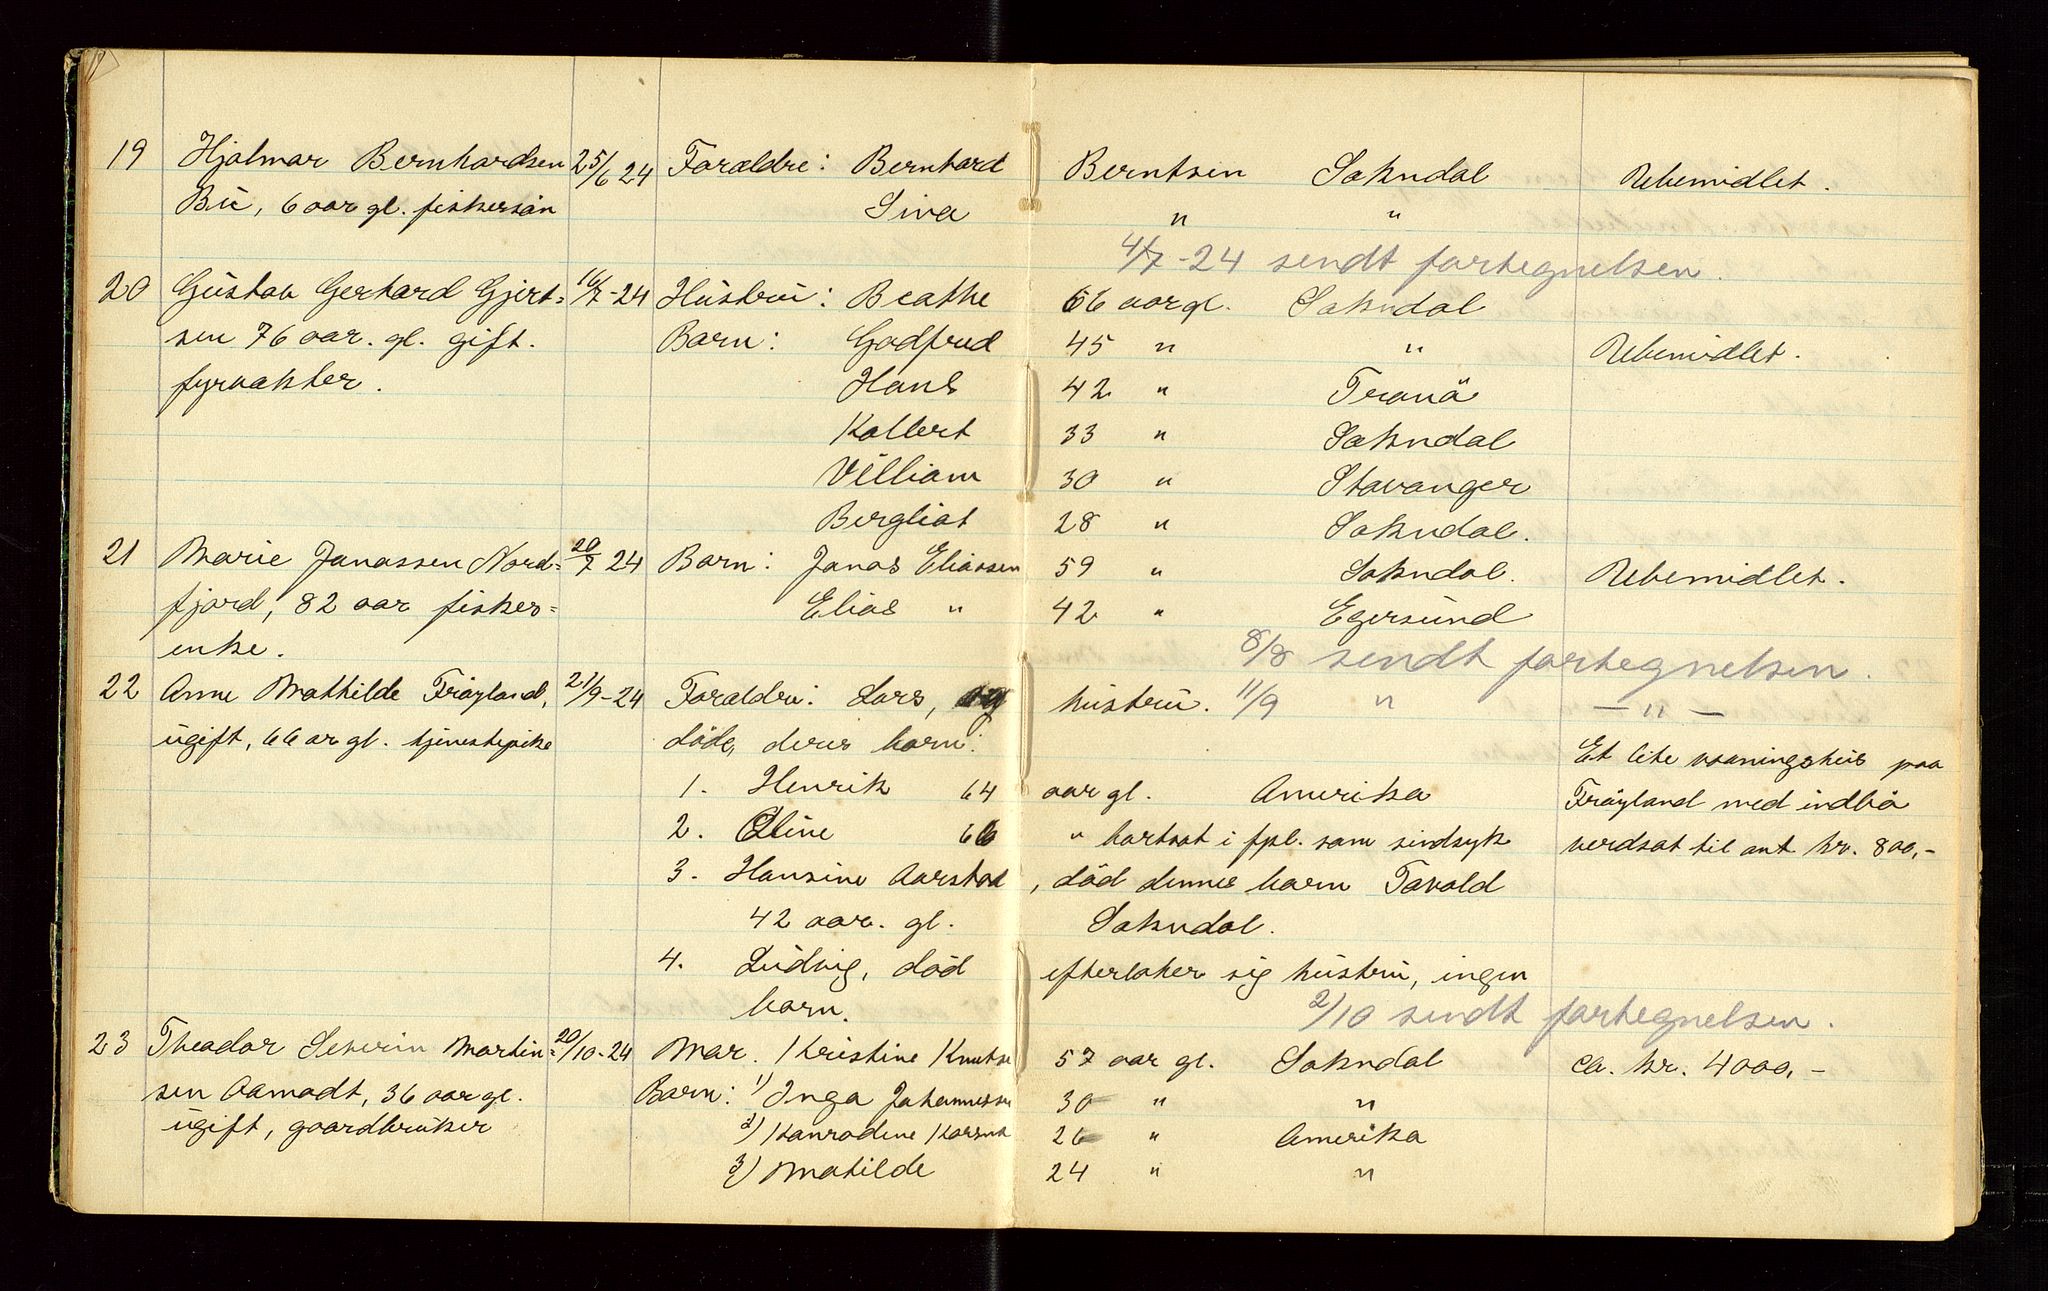 19 Hjalmar Bernhardsen 25/6 24 Forældre: Bernhard Berntsen Sokndal Ubemidlet.
Bü, 6 aar gl. fiskersön Sina " "
4/7 - 24 sendt fortegnelsen.
20 Gustav Gerhard Gjert= 16/7-24 Hustru: Beathe 66 aar gl. Sokndal
sen 76 aar. gl. gift. Barn: Godfred 45 " " Ubemidlet.
fyrvakter. Hans 42 " Tromö
Kollert 33 " Sokndal
Villiam 30 " Stavanger
Bergliot 28 " Sokndal.
21 Marie Jonassen Nord= 20/7 24 Barn: Jonas Eliassen 59 " Sokndal. Ubemidlet.
fjord, 82 aar fisker= Elias " 42 " Egersund
enke. 8/8 sendt fortegnelsen.
22 Anne Mathilde Fröyland, 21/9-24 Forældre: Lars, og hustru. 11/9 " — " —
ugift, 66 ar gl. tjenestepike döde, deres barn:
Et lite vaaningshus paa
1. Henrik 64 aar gl. Amerika Fröyland med indbo
2. Oline 66 " bortsat i fpl. som sindsyk verdsat til ant kr. 800,-
3. Hansine Aarstad, död dennes barn Tavald
42 aar. gl. Sokndal.
4. Ludvig, död efterlater sig hustru, ingen
barn. 2/10 sendt fortegnelsen.
23 Theodor Severin Martin= 20/10-24 Mor. Kristine Knutsen 57 aar gl. Sokndal ca. kr. 4000,-
sen Aamodt, 36 aar gl. Barn: 1) Inga Johannessen 30 " "
ugift, gaardbruker 2) Konradine 26 " Amerika
3) Matilde 24 " "